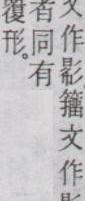 文作籀文作
者同有
覆形。